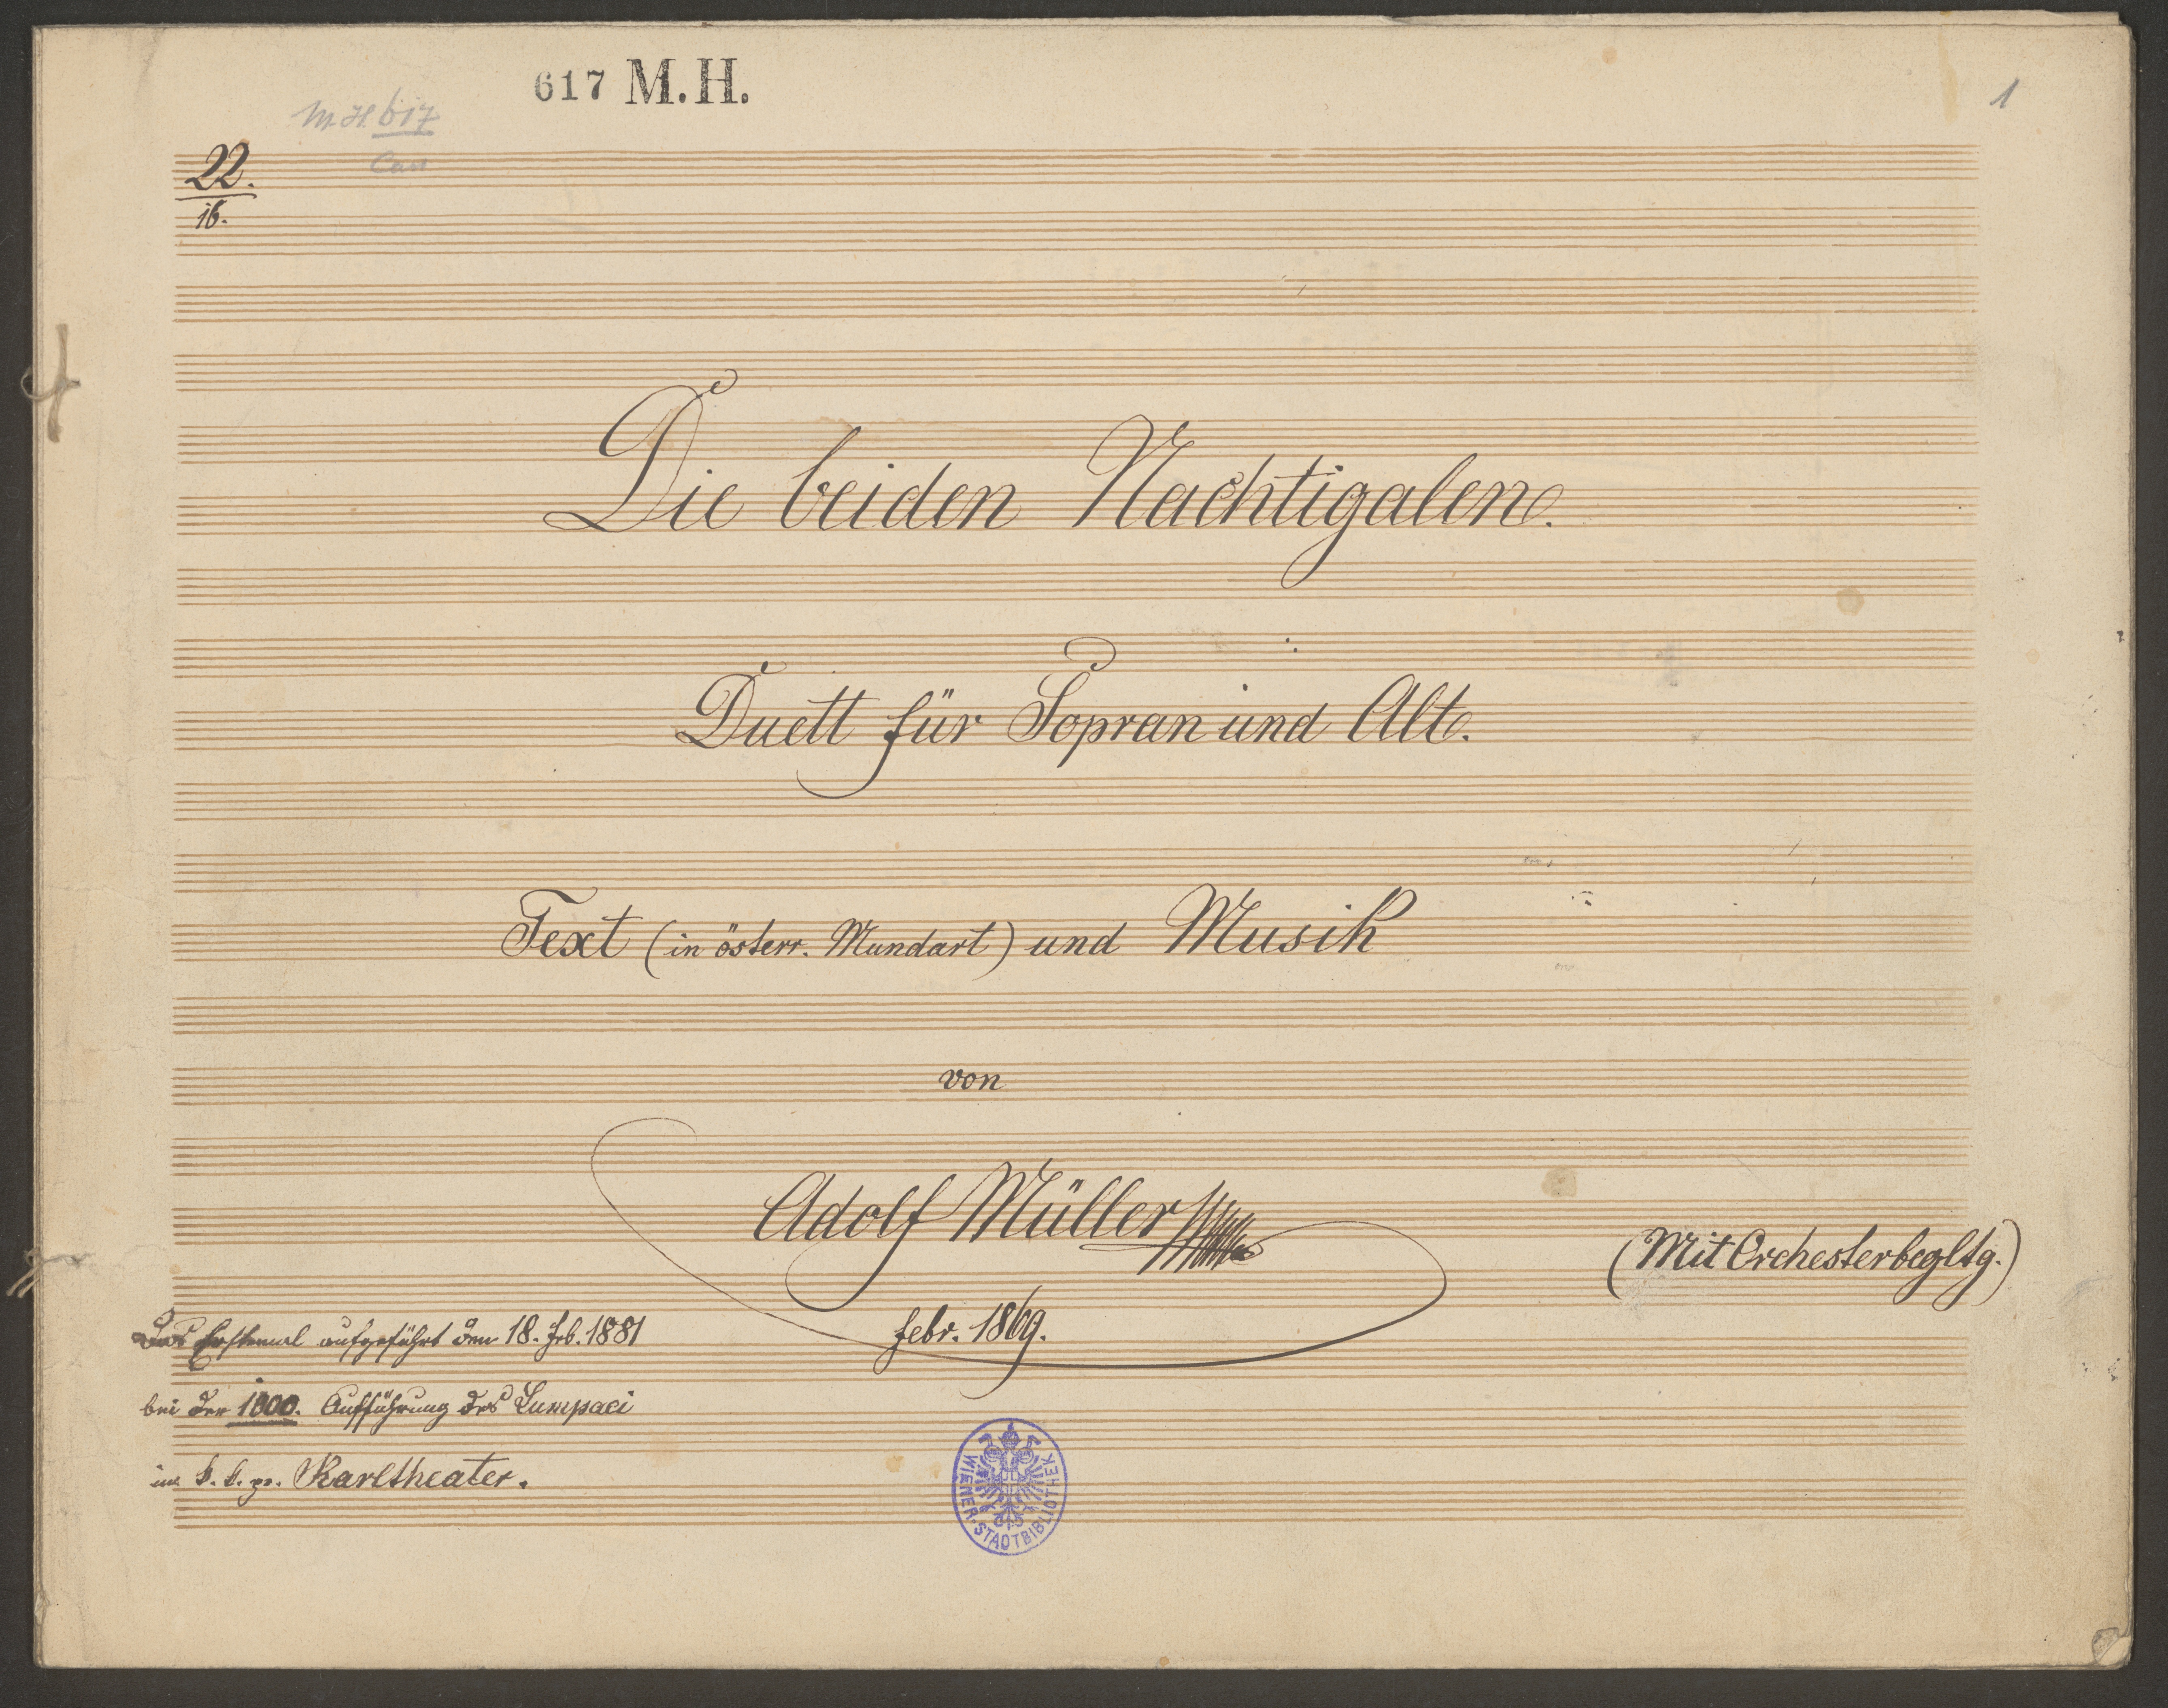 617 M. H.
M. H. 617
1
22.
16.
Die beiden Nachtigalen.
Duett für Sopran und Alt.
Text (in österr. Mundart) und Musik
von
Adolf Müller
(Mit Orchesterbegltg.)
febr. 1869.
Das Erstemal aufgeführt den 18. Feb. 1881
bei der 1000. Aufführung des Lumpaci
im k. k. pr. Karltheater.
WIENER-STADTBIBLIOTHEK